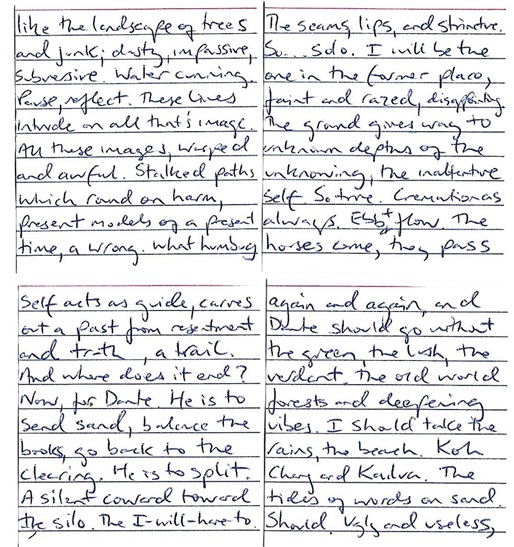 like the landscape of trees
and junk; dusty, impassive,
subversive. Water cunning.
Pause, reflect. These lives
intrude on all that's image.
All these images, warped
and awful. Stalked paths
which round on harm,
present models of a present
time, a wrong. What humbug
The seams, lips, and
So... solo. I will be the
one in the former place,
faint and razed, disappointing.
The ground gives way to
unknown depths of the
unknowing, the
Self. So true. Cremation as
always. Ebb + flow. The
horses come, they pass
Self acts as guide, carves
out a past from resentment
and truth, a trail.
And where does it end?
Now, for Dante. He is to
send sand, balance the
books, go back to the
clearing. He is to split.
A silent coward toward
the silo. The I-will-have-to.
again and again, and
Dante should go without
the green, the lush, the
verdant, the old world
forests and deepening
vibes. I should take the
rains, the beach. Koh
Chang and The
tides of words on sand.
Should. Ugly and useless,